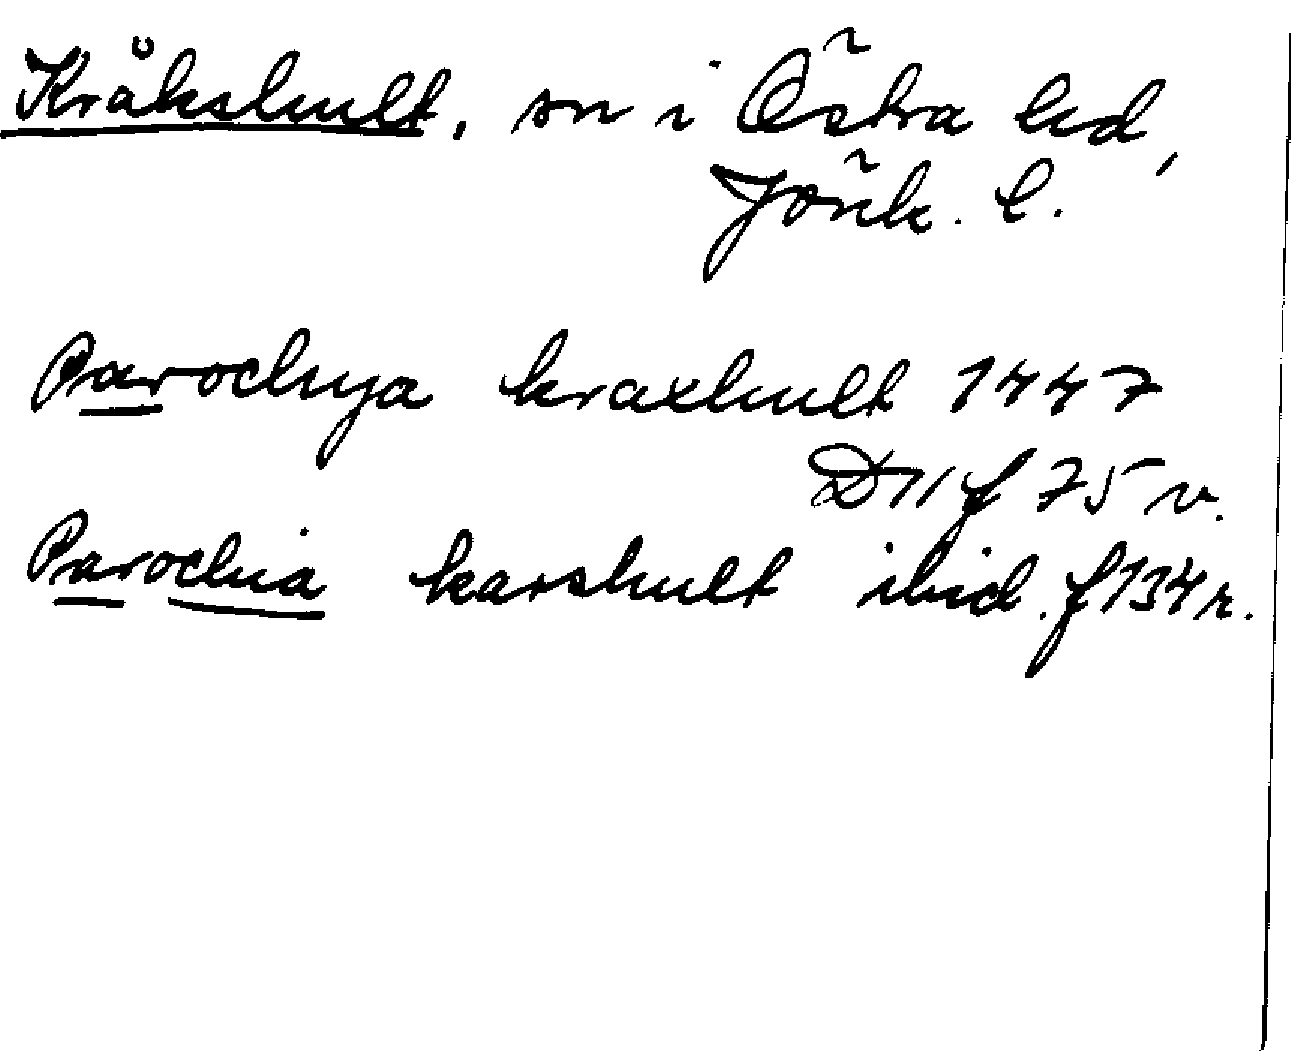 Kråkshult, sn i Östra hd,
Jönk. l.
Parochya kraxhult 1447
D11 f 75 v.
Parochia karshult ibid. f 134 r.